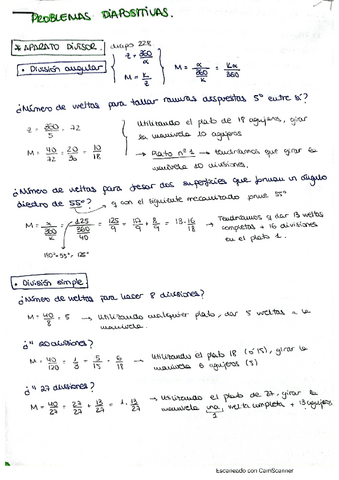 PROBLEMAS DIAPOSITIVAS.
* APARATO DIVISOR. diapo 228
• División angular
Z = 360/α
M = K/Z
M = α/(360/K) = Kα/360
¿Número de vueltas para tallar ranuras dispuestas 5° entre sí?
Z = 360/5 = 72
M = 40/72 = 20/36 = 10/18
Utilizando el plato de 18 agujeros, girar
la manivela 10 agujeros
→ Plato nº 1 → tendríamos que girar la
manivela 10 divisiones.
¿Número de vueltas para fresar dos superficies que forman un ángulo
diedro de 55°?
M = α/(360/K) = 125/(360/40) = 125/9 = 117/9 + 8/9 = 13 · 16/18 →
Tendríamos q dar 13 vueltas
completas + 16 divisiones
en el plato 1.
180° - 55° = 125°
• División simple
¿Número de vueltas para hacer 8 divisiones?
M = 40/8 = 5 → Utilizando cualquier plato, dar 5 vueltas a la
manivela.
¿" 120 divisiones?
M = 40/120 = 1/3 = 5/15 = 6/18 → Utilizando el plato 18 (o 15), girar la
manivela 6 agujeros (5)
¿" 27 divisiones?
M = 40/27 = 27/27 + 13/27 = 1 · 13/27 → Utilizando el plato de 27, girar la
manivela una vuelta completa + 13 agujeros
1
Escaneado con CamScanner